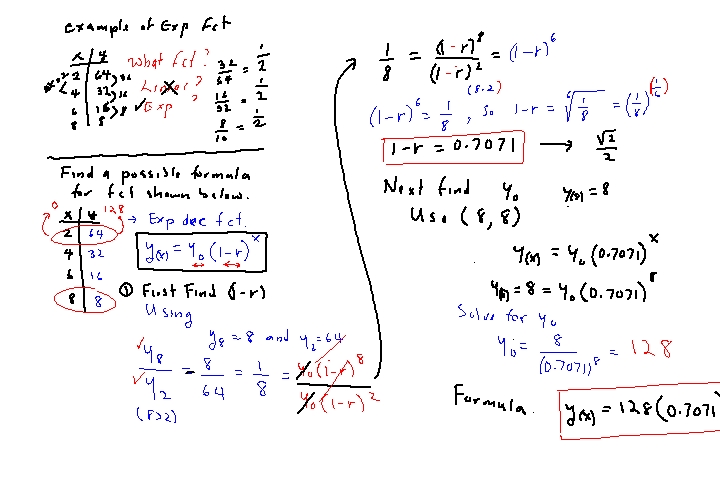 Example of Exp Fct
x | y
2 | 64
4 | 32
6 | 16
8 | 8
What fct?
Linear?
Exp ?
32/64 = 1/2
16/32 = 1/2
8/16 = 1/2
Find a possible formula
for fct shown below.
0 128
x | y
2 | 64
4 | 32
6 | 16
8 | 8
→ Exp dec fct.
y(x) = y₀ (1-r)^x
① First Find (1-r)
Using
y₈ = 8 and y₂ = 64
y₈/y₂ = 8/64 = 1/8 = y₀(1-r)^8 / y₀(1-r)^2
(8>2)
1/8 = (1-r)^8 / (1-r)^2 = (1-r)^6
(8-2)
(1-r)^6 = 1/8 , so 1-r = ⁶√(1/8) = (1/8)^(1/6)
1-r = 0.7071 → √2/2
Next find y₀ y(8) = 8
Use (8, 8)
y(x) = y₀ (0.7071)^x
y(8) = 8 = y₀ (0.7071)^8
Solve for y₀
y₀ = 8/(0.7071)^8 = 128
Formula. y(x) = 128(0.7071